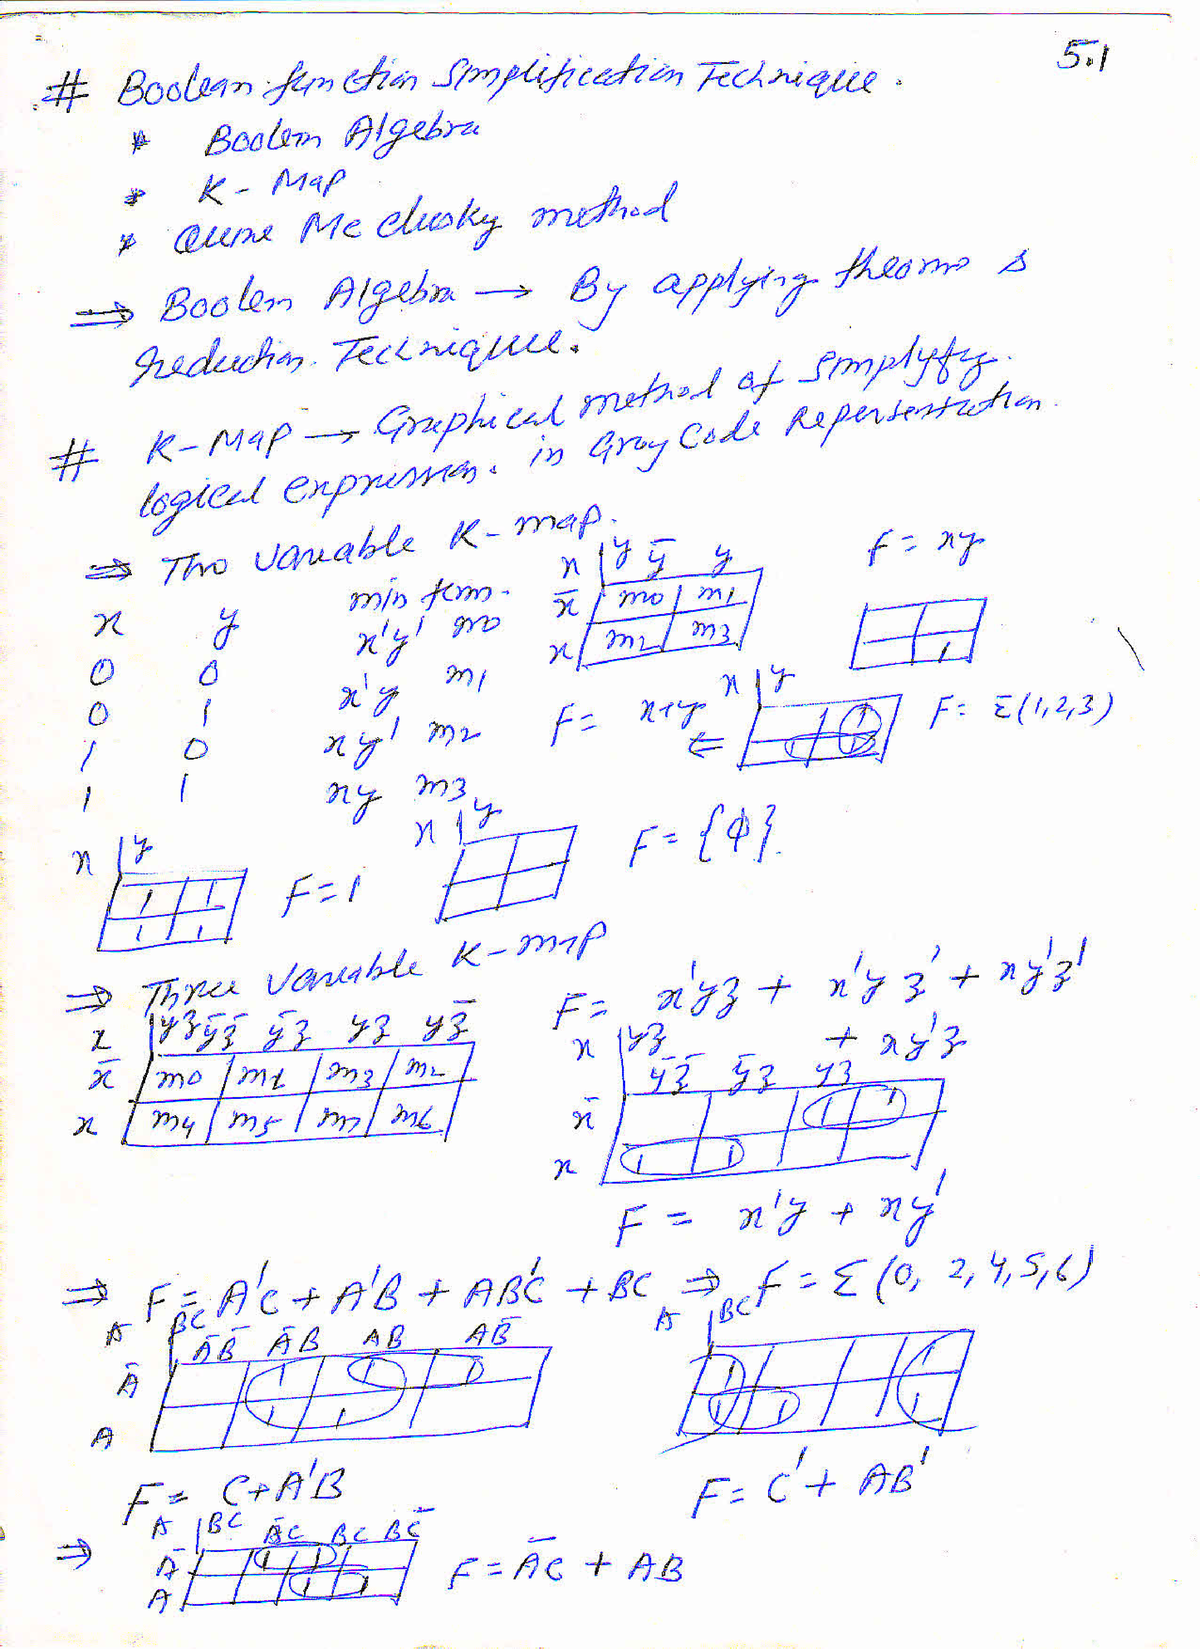 5.1
# Boolean function Simplification Technique.
* Boolen Algebra
* K - Map
* Quine Mc Clusky method
⇒ Boolen Algebra → By applying theorms
reduction Technique.
# K-Map → Graphical method of simplyfy
logical expression. in Gray Code Repersentation.
⇒ Two variable K-map.
x y min term.
0 0 x'y' m0
0 1 x'y m1
1 0 xy' m2
1 1 xy m3
x y ȳ y
x̄ m0 m1
x m2 m3
F = xy
1
F = x+y ⇐
x y
1
1 1
F = Σ(1,2,3)
x y
1 1
1 1
F=1
x y
F = {Φ}.
⇒ Three variable K-map
x yz ȳz̄ ȳz yz yz̄
x̄ m0 m1 m3 m2
x m4 m5 m7 m6
F = x'yz + x'yz' + xy'z'
+ xy'z
x yz
ȳz̄ ȳz yz
x̄ 1 1
x 1 1
F = x'y + xy'
⇒ F = A'C + A'B + AB'C + BC
A BC
ĀB̄ ĀB AB AB̄
Ā 1 1 1
A 1 1
F = C+A'B
⇒ F = Σ(0, 2,4,5,6)
A BC
1 1
1 1 1
F = C' + AB'
⇒
A BC B̄C BC BC̄
Ā 1 1
A 1 1
F = ĀC + AB